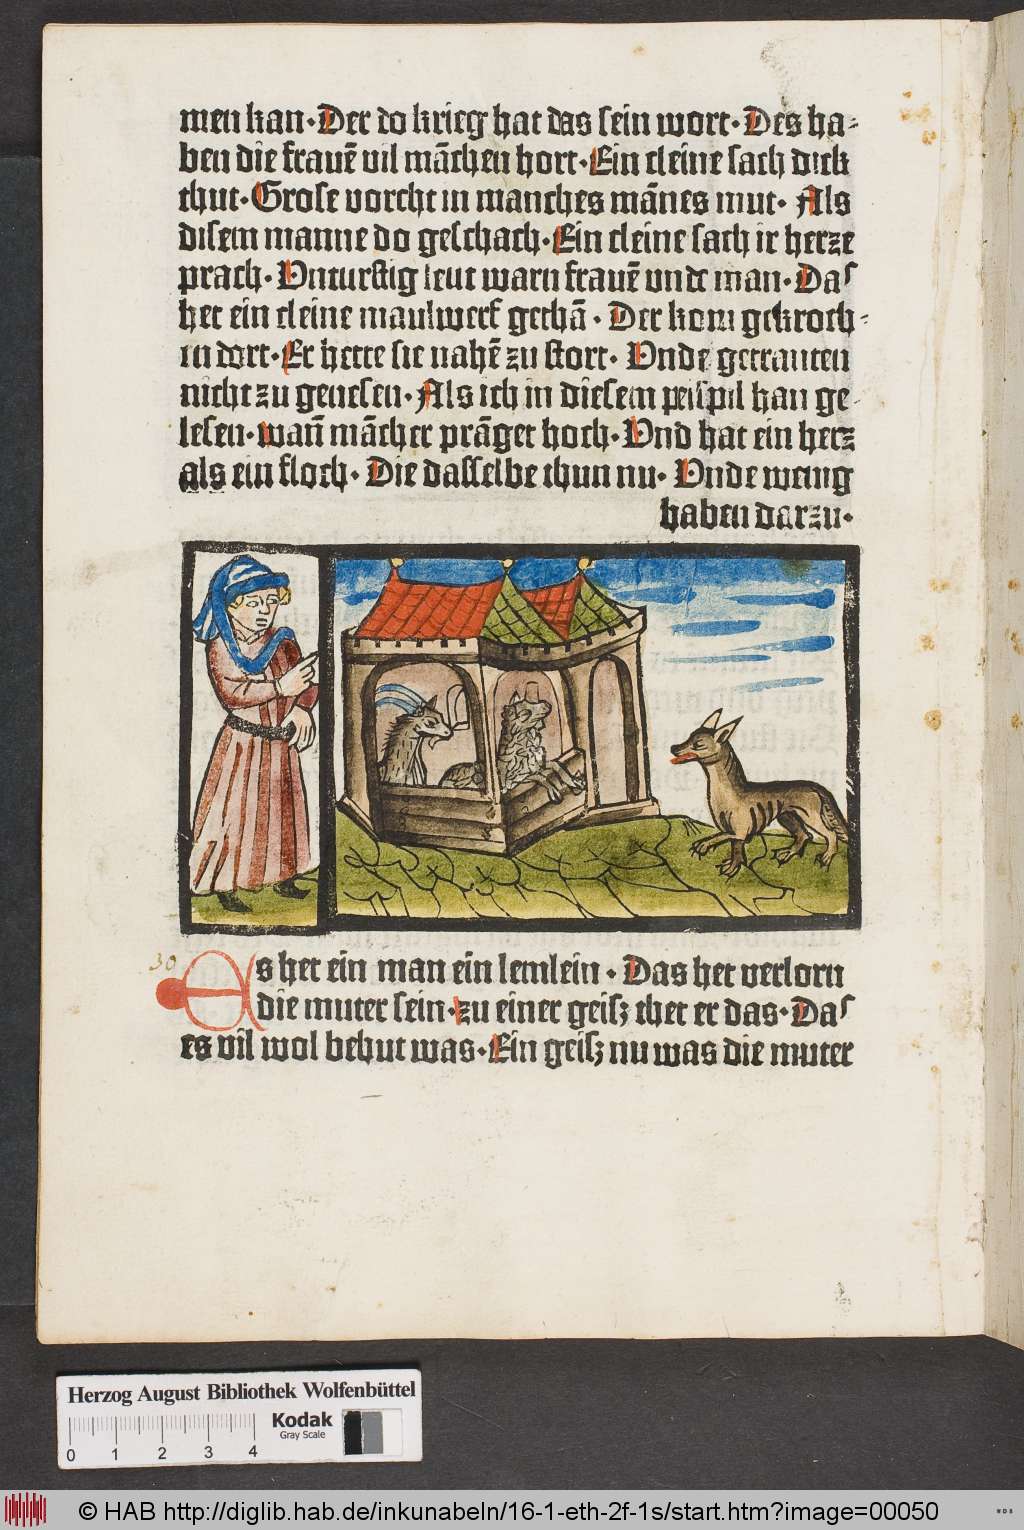 men kan. Der do krieg hat das sein wort. Des ha-
ben die frauē vil mãchen hort. Ein cleine sach dick
thut. Grose vorcht in manches mãnes mut. Als
disem manne do geschach. Ein cleine sach ir herze
prach. Unturstig leut warn frauē unde man. Das
het ein cleine maulwerf gethã. Der kom gekroch-
in dort. Er hette sie nahē zu stort. Unde getrauten
nicht zu genesen. Als ich in diesem peispil han ge
lesen. wañ mãcher prãget hoch. Und hat ein herz
als ein floch. Die dasselbe thun nu. Unde wenig
haben darzu.
30
Es het ein man ein lemlein. Das het verlorn
die muter sein. zu einer geisz thet er das. Das
es vil wol behut was. Ein geisz nu was die muter
Herzog August Bibliothek Wolfenbüttel
Kodak
Gray Scale
0 1 2 3 4
© HAB http://diglib.hab.de/inkunabeln/16-1-eth-2f-1s/start.htm?image=00050